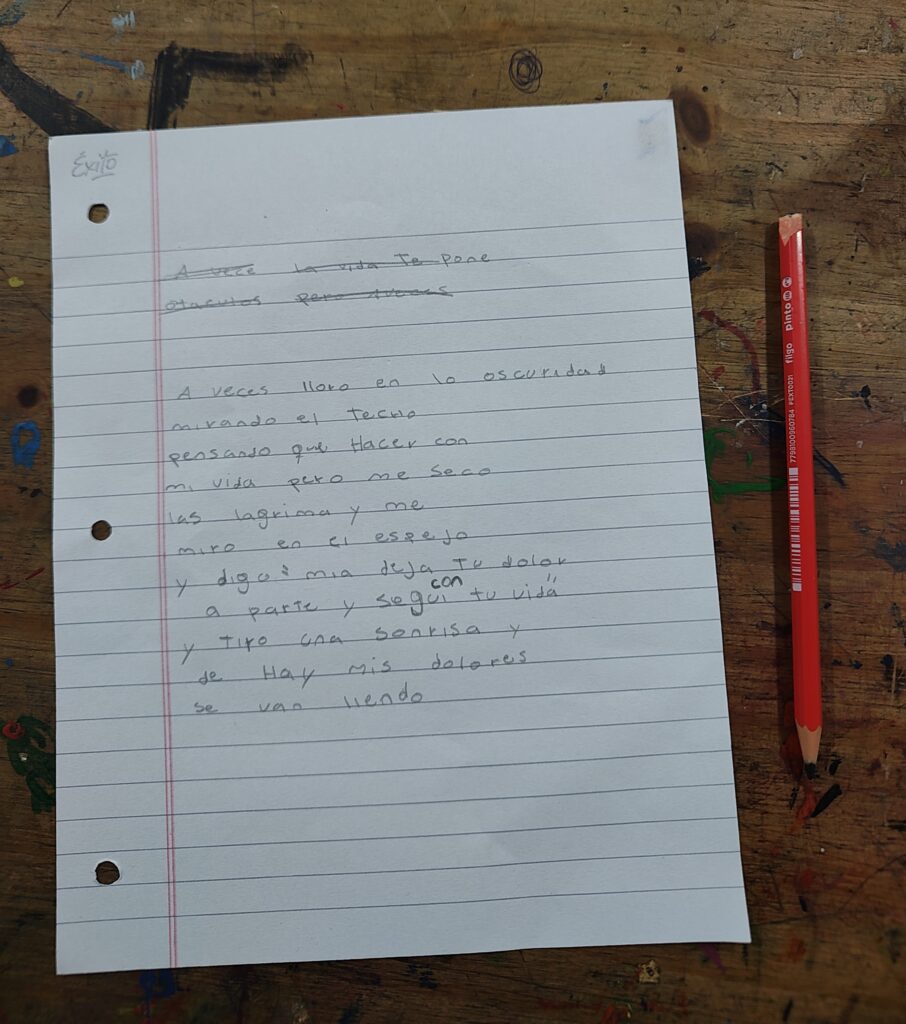 Éxito
A vece la vida te pone
otaculos pero aveces
A veces lloro en la oscuridad
mirando el techo
pensando que Hacer con
mi vida pero me seco
las lagrima y me
miro en el espejo
y digo: mia deja tu dolor
a parte y segui con tu vida"
y tiro una sonrisa y
de Hay mis dolores
se van llendo
pinto m filgo
7798100960784 PEXT0021